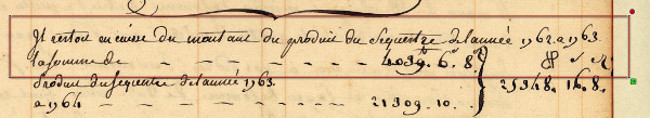 Il restoit en caisse du montant du produit du Sequestre de l'année 1762 a 1763.
la somme de _ _ _ _ _ _ _ _ 4039.# 6.s 8.d
Produit du sequestre de l'année 1763. 25348. 16. 8.
a 1764 _ _ _ _ _ _ _ _ _ 21309. 10..